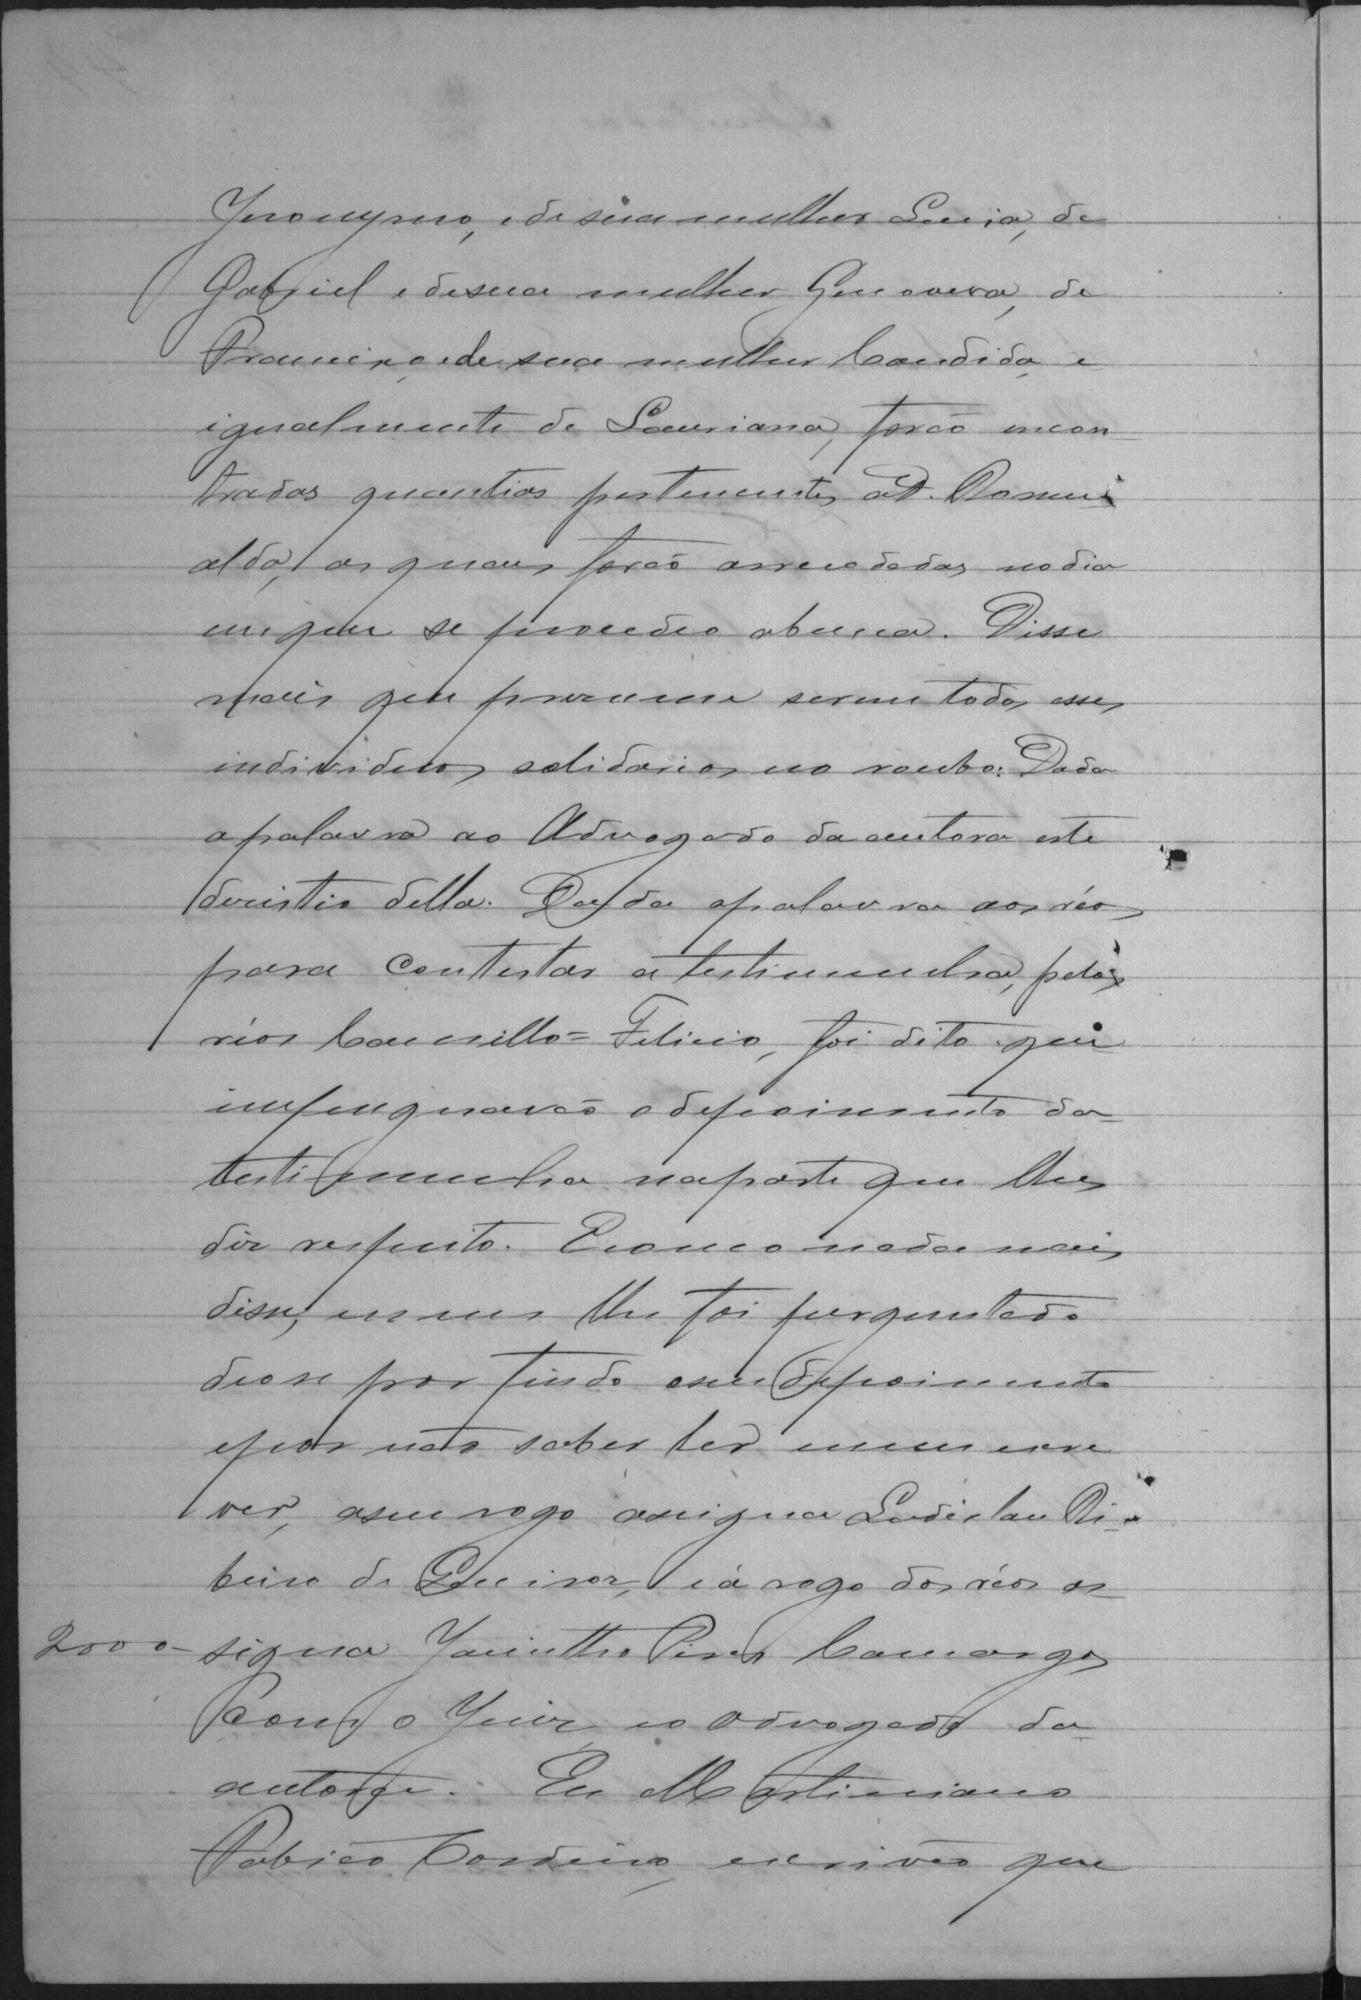 Jeronymo, e de sua mulher Lucia, de
Gabriel e de sua mulher Genoveva, de
Francisco e de sua mulher Candida e
igualmente de Lauriana, forão encon-
tradas quantias pertencentes a D. Romu-
alda, as quaes forão arrecadadas no dia
em que se procedeo a busca. Disse
mais que presume serem todos esses
individuos solidarios no roubo. Dada
a palavra ao Advogado da autora este
desistio della. Dada a palavra aos réos
para contestar a testimunha, pelos
réos Camillo = Felicio, foi dito que
impugnavão o depoimento da
testimunha na parte que lhes
diz respeito. E como nada mais
disse, e nem lhe foi perguntado
deo-se por findo o seu depoimento
e por não saber ler e nem escre
ver, a seu rogo assigna Ladislau Ri-
beiro de e á rogo dos réos as-
2000 - signa Jacintho Pires Camargo,
com o Juiz e o advogado da
autora. Eu Martiniano
Fabião Cordeiro, escrivão que